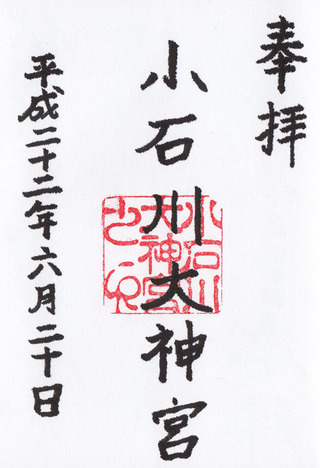 奉拝
小石川大神宮
小石川
大神宮
之印
平成二十二年六月二十日